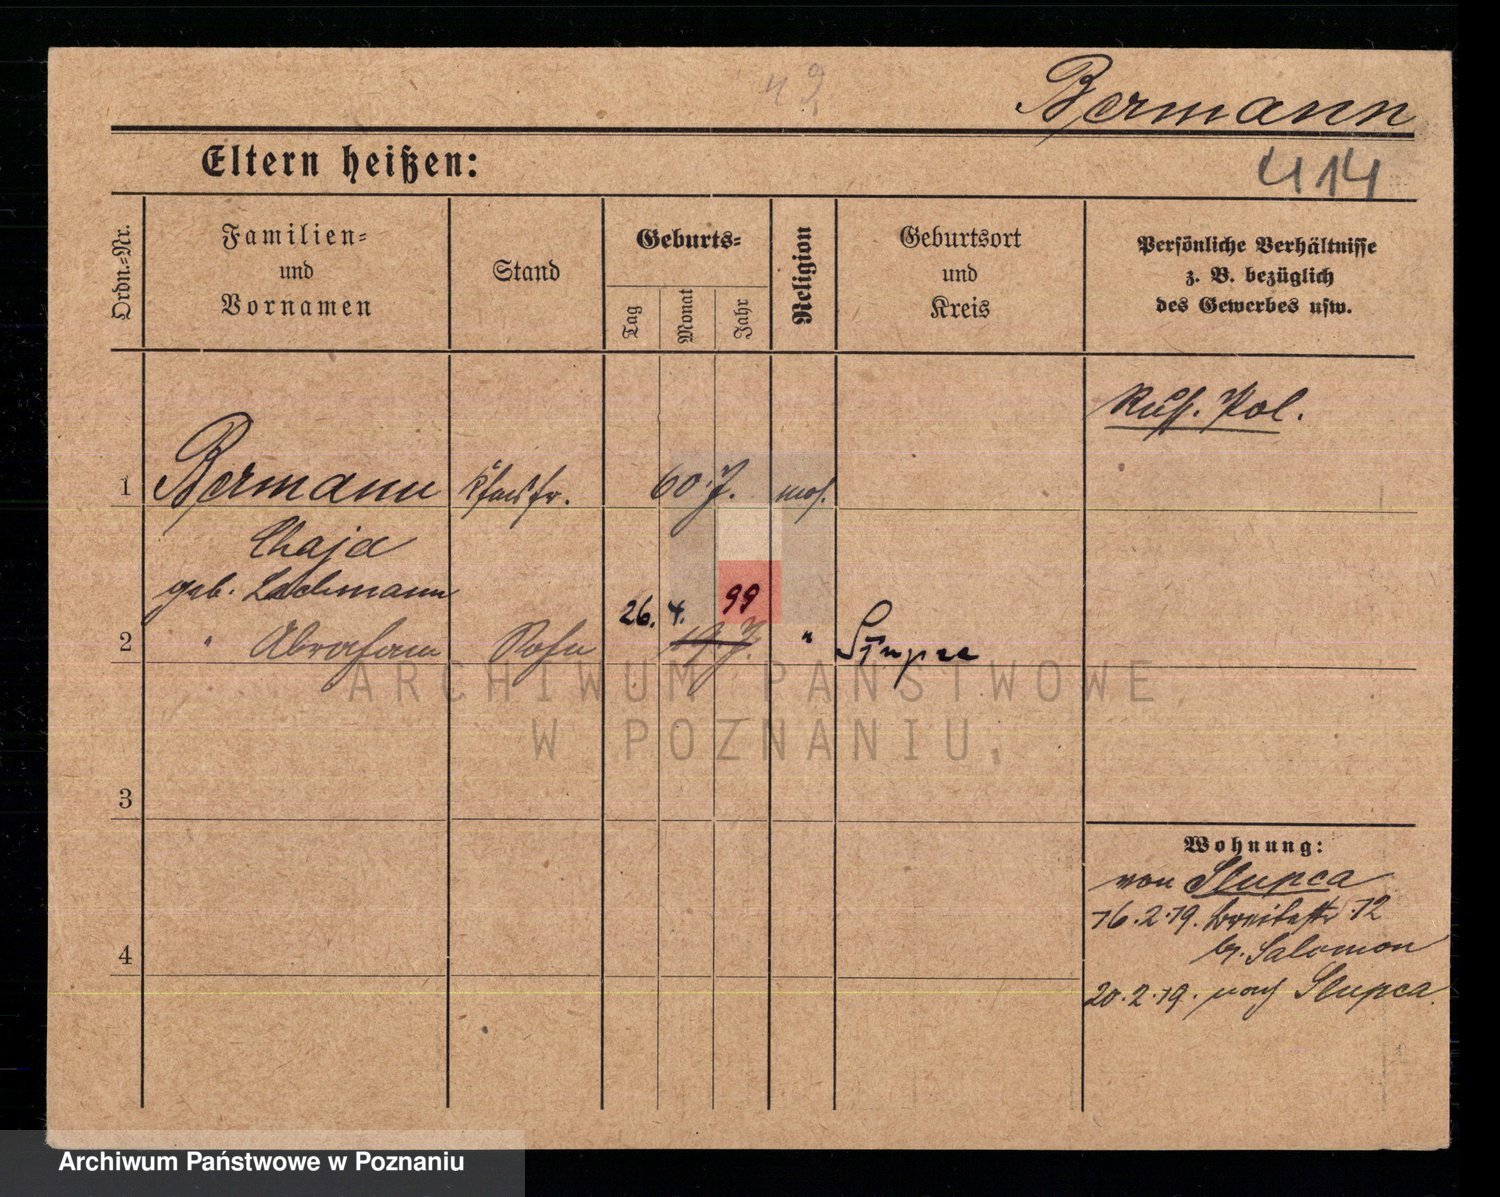 Bermann
414
Eltern heißen:
Ordn.-Nr.
Familien-
und
Vornamen
Stand
Geburts-
Tag
Monat
Jahr
Religion
Geburtsort
und
Kreis
Persönliche Verhältnisse
z. B. bezüglich
des Gewerbes usw.
Russ. Pol.
1 Bermann 60 J. mos.
Chaja
geb. Lachmann
26. 4. 99
2 " Abraham Sohn 19 J. " Słupca
3
Wohnung:
von Slupca
16.2.19. Breitestr 12
b. Salomon
4
20.2.19. nach Slupca.
ARCHIWUM PAŃSTWOWE
W POZNANIU
Archiwum Państwowe w Poznaniu